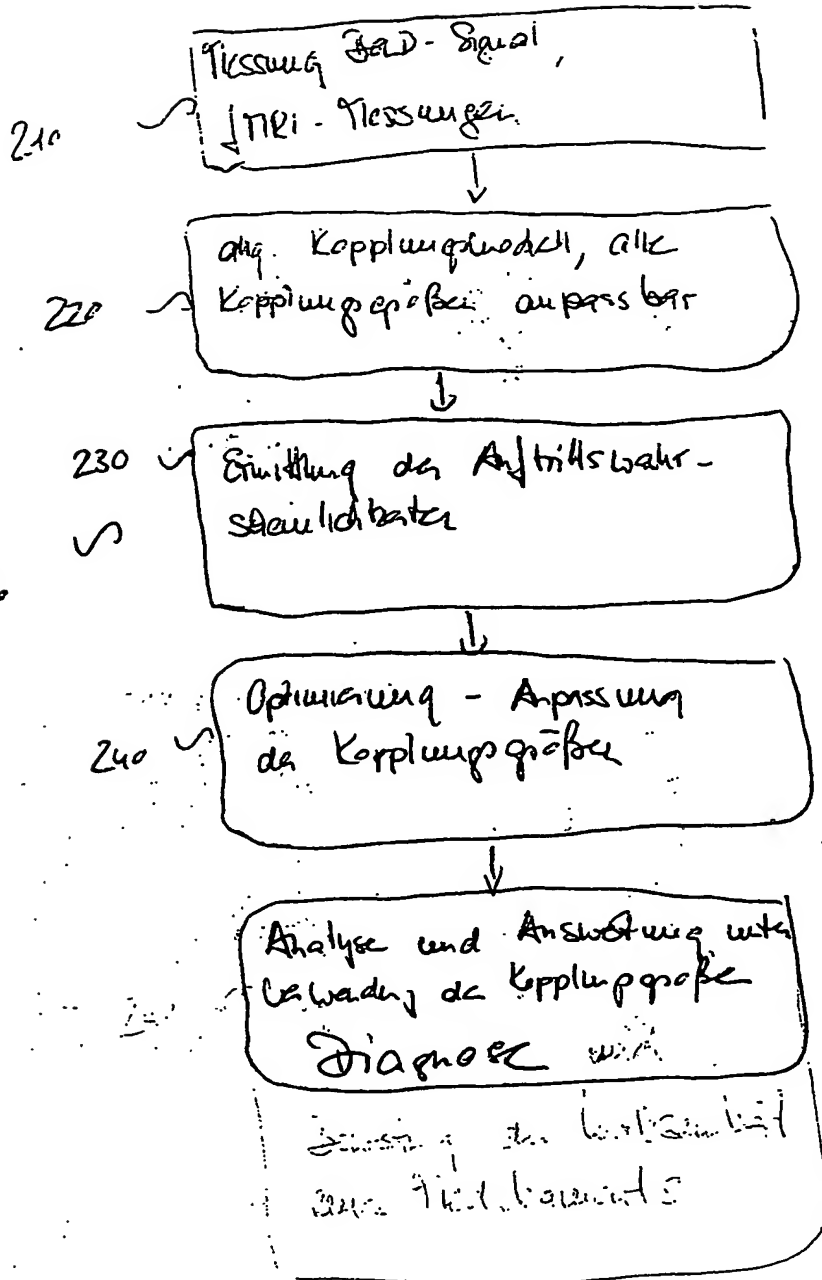 Messung BOLD-Signal,
fMRi-Messungen
210
allg. Kopplungsmodell, alle
Kopplungsgrößen anpassbar
220
230
Ermittlung der Auftrittswahr-
scheinlichkeiten
Optimierung - Anpassung
der Kopplungsgrößen
240
Analyse und Auswertung unter
Verwendung der Kopplungsgrößen
Diagnose